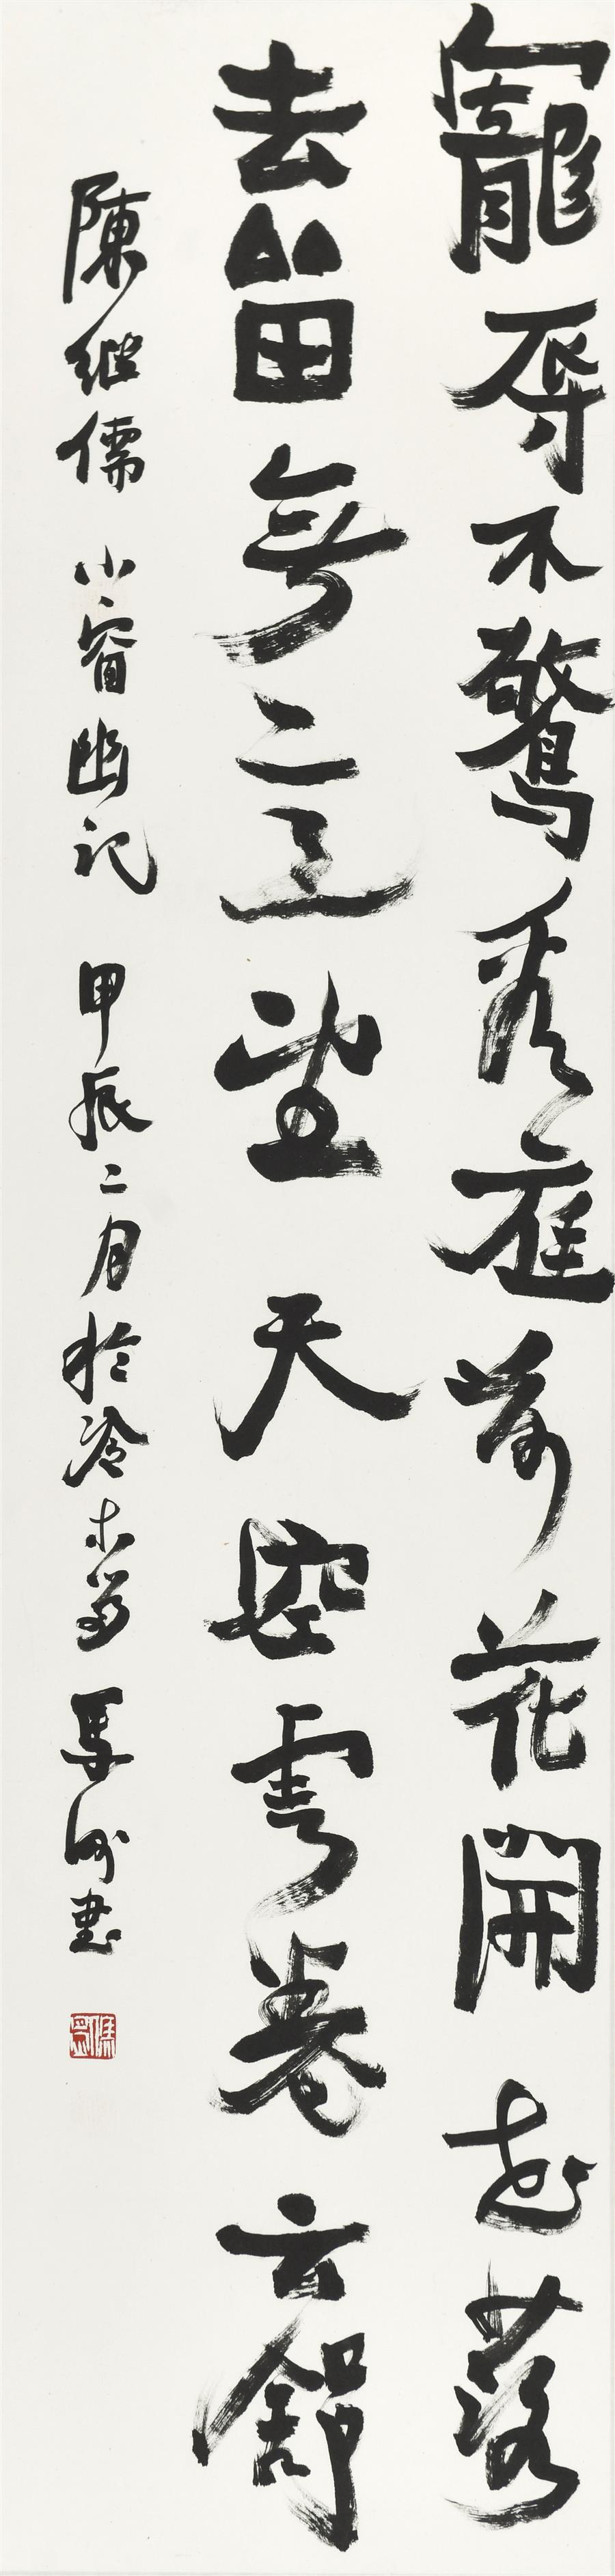 寵辱不驚看庭前花開花落
去留無意望天空雲卷云舒
陳继儒 小窗幽记 甲辰二月於冷木斋 馬剑書